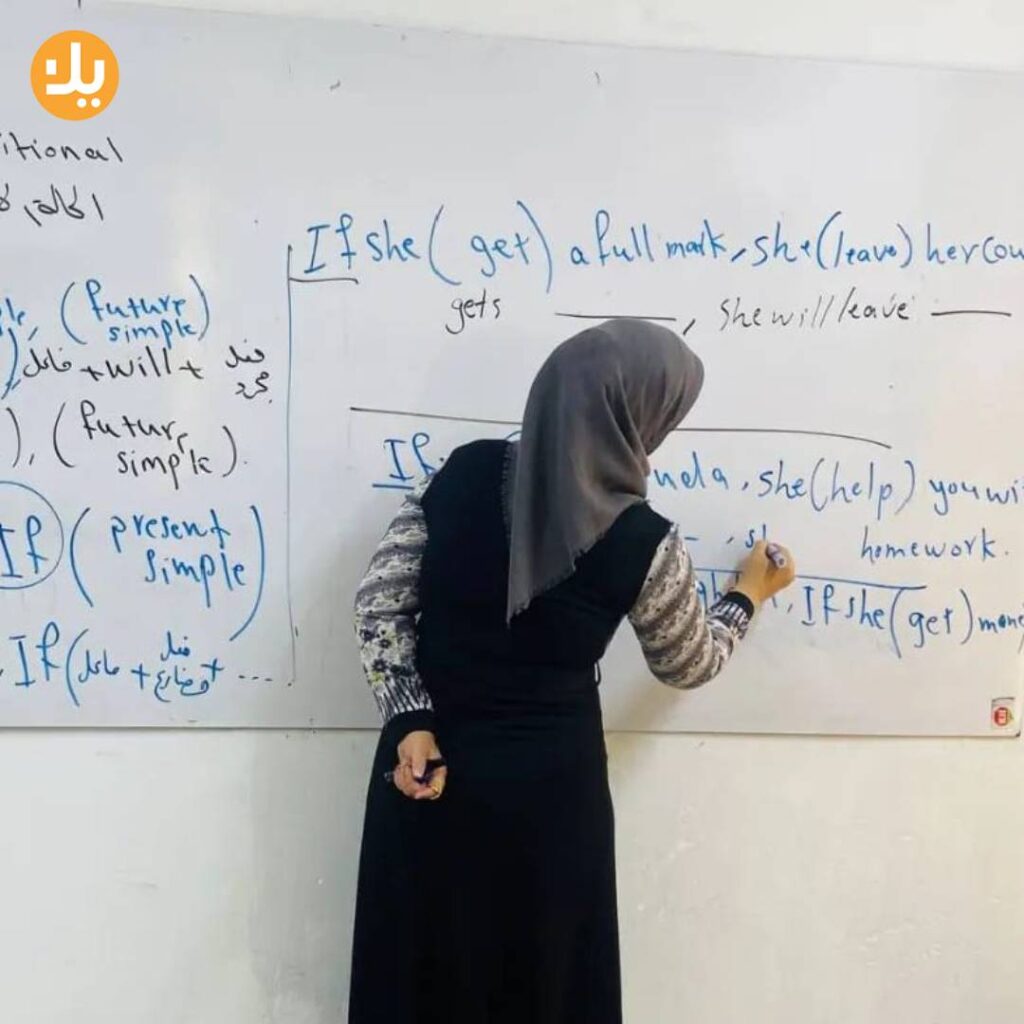 يلا
itional
الحالة
(future
simple)
فاعل + will + فعل
مجرد
), (future
simple).
If (present
simple)
If (فاعل + فعل
مضارع + ...
If she (get) a full mark, she (leave) her cou
gets ________, she will leave ____
If nda, she (help) you wi
homework.
, If she (get) mone